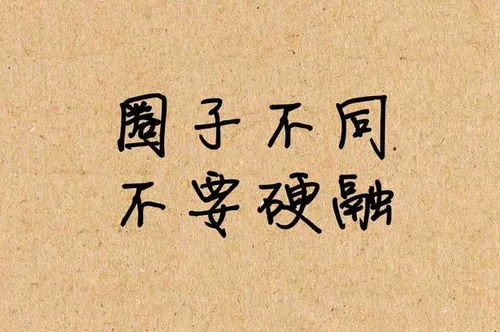 圈子不同
不要硬融